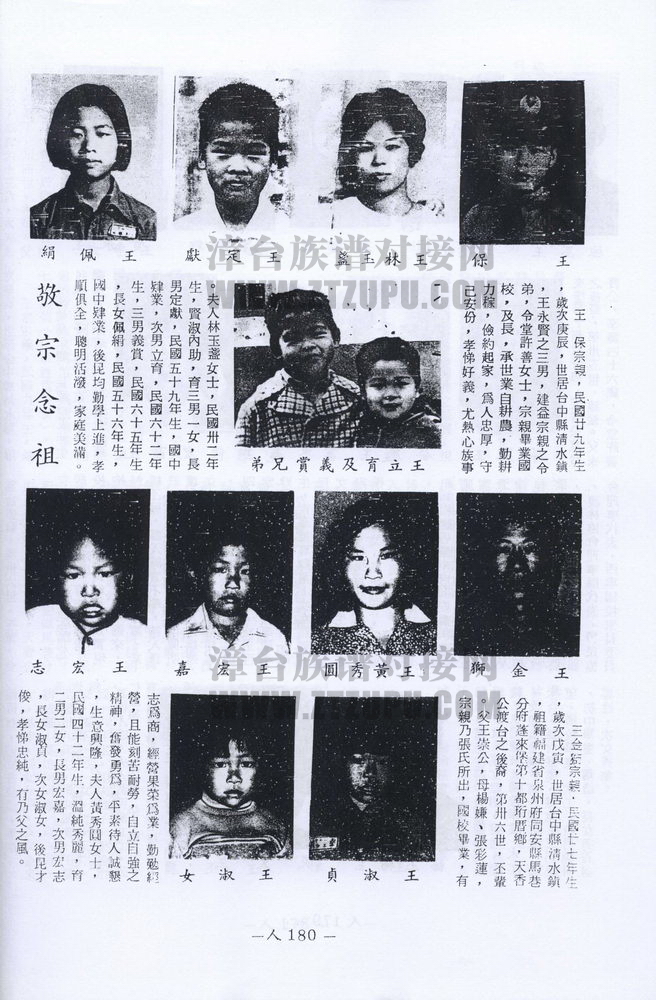 保　王
王林玉盞
獻　定　王
絹　佩　王
王　保宗親，民國廿九年生
，歲次庚辰，世居台中縣清水鎮
，王永賢之三男，建益宗親之令
弟，令堂許善女士，宗親畢業國
校，及長，承世業自耕農，勤耕
力稼，儉約起家，爲人忠厚，守
己安份，孝悌好義，尤熱心族事
弟兄賞義及育立王
。夫人林玉盞女士，民國卅二年
生，賢淑內助，育三男一女，長
男定獻，民國五十九年生，國中
肄業，次男立育，民國六十二年
生，三男義賞，民國六十五年生
，長女佩絹，民國五十六年生，
國中肄業，後昆均勤學上進，孝
順俱全，聰明活潑，家庭美滿。
敬宗念祖
獅　金　王
圓秀黃王
嘉　宏　王
志　宏　王
王金獅宗親，民國廿七年生
，歲次戊寅，世居台中縣清水鎮
，祖籍福建省泉州府同安縣馬巷
分府蓬來堡第十都珩厝鄉，天香
公渡台之後裔，弟卅六世，丕輩
。父王崇公，母楊嫌、張彩蓮，
宗親乃張氏所出，國校畢業，有
貞　淑　王
女　淑　王
志爲商，經營果菜爲業，勤勉經
營，且能刻苦耐勞，自立自強之
精神，奮發勇爲，平素待人誠懇
，生意興隆，夫人黃秀圓女士，
民國四十二年生，溫純秀麗，育
二男二女，長男宏嘉，次男宏志
，長女淑貞，次女淑女，後昆才
俊，孝悌忠純，有乃父之風。
—人 180 —
漳台族谱对接网
WWW.ZTZUPU.COM
漳台族谱对接网
WWW.ZTZUPU.COM